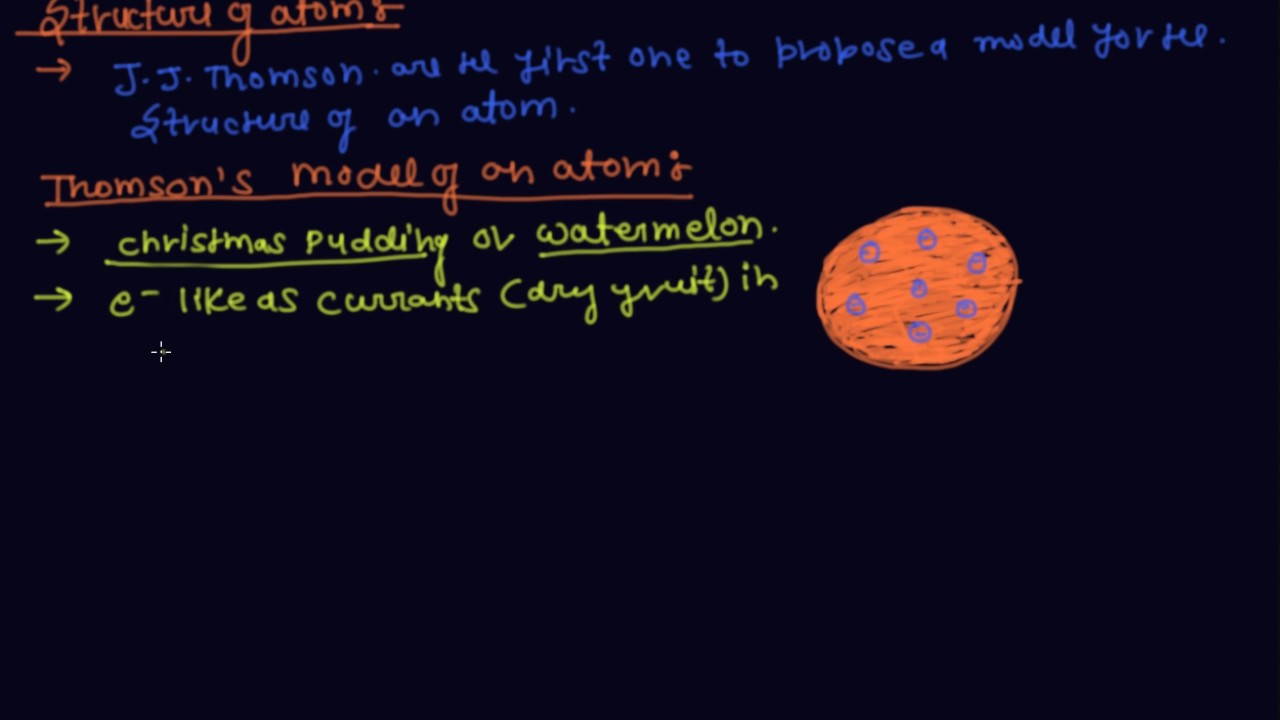 Structure of atom :
→ J.J. Thomson. are the first one to propose a model for the.
Structure of an atom.
Thomson's model of an atom :
→ christmas pudding or watermelon.
→ e⁻ like as currants (dry fruit) in